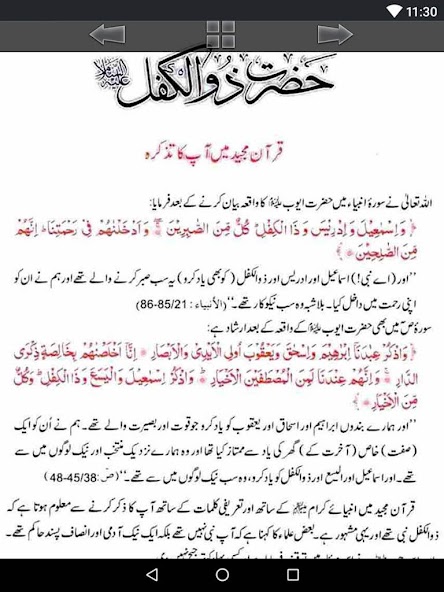 11:30
حضرت ذوالکفل علیہ السلام
قرآن مجید میں آپ کا تذکرہ
اللہ تعالیٰ نے سورۂ انبیاء میں حضرت ایوب علیہ السلام کا واقعہ بیان کرنے کے بعد فرمایا:
﴿ وَاِسْمٰعِيْلَ وَاِدْرِيْسَ وَذَا الْكِفْلِ ؕ كُلٌّ مِّنَ الصّٰبِرِيْنَ ۚۖ وَاَدْخَلْنٰهُمْ فِيْ رَحْمَتِنَا ؕ اِنَّهُمْ
مِّنَ الصّٰلِحِيْنَ ﴾
’’اور (اے نبی!) اسماعیل اور ادریس اور ذوالکفل (کو بھی یاد کرو) یہ سب صبر کرنے والے تھے اور ہم نے ان کو
اپنی رحمت میں داخل کیا۔ بلاشبہ وہ سب نیکوکار تھے۔‘‘ (الأنبیاء: 85/21-86)
سورۂ صٓ میں بھی حضرت ایوب علیہ السلام کے واقعہ کے بعد ارشاد ہے:
﴿ وَاذْكُرْ عِبٰدَنَاۤ اِبْرٰهِيْمَ وَاِسْحٰقَ وَيَعْقُوْبَ اُولِي الْاَيْدِيْ وَالْاَبْصَارِ ۝ اِنَّاۤ اَخْلَصْنٰهُمْ بِخَالِصَةٍ ذِكْرَى
الدَّارِ ۚ وَاِنَّهُمْ عِنْدَنَا لَمِنَ الْمُصْطَفَيْنَ الْاَخْيَارِ ؕ وَاذْكُرْ اِسْمٰعِيْلَ وَالْيَسَعَ وَذَا الْكِفْلِ ؕ وَكُلٌّ
مِّنَ الْاَخْيَارِ ﴾
’’اور ہمارے بندوں ابراہیم اور اسحاق اور یعقوب کو یاد کرو جو قوت اور بصیرت والے تھے۔ ہم نے اُن کو ایک
(صفت) خاص (آخرت کے) گھر کی یاد سے ممتاز کیا تھا اور وہ ہمارے نزدیک منتخب اور نیک لوگوں میں سے
تھے۔ اور اسماعیل اور الیسع اور ذوالکفل کو یاد کرو، وہ سب نیک لوگوں میں سے تھے۔‘‘ (صٓ: 45/38-48)
قرآن مجید میں انبیائے کرام علیہم السلام کے ساتھ اور تعریفی کلمات کے ساتھ آپ کا ذکر کرنے سے معلوم ہوتا ہے کہ
ذوالکفل نبی تھے اور یہی مشہور ہے۔ بعض علماء کا کہنا ہے کہ آپ نبی نہیں تھے بلکہ ایک نیک آدمی اور انصاف پسند حاکم تھے۔